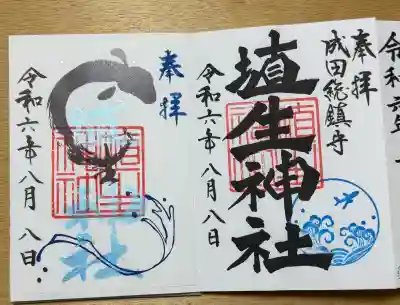 奉拝
社
令和六年八月八日
奉拝
成田総鎮守
埴生神社
令和六年八月八日
令和六年